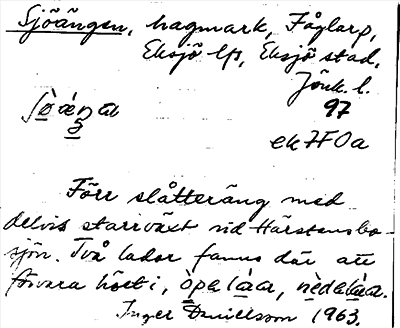 Sjöängen, hagmark, Fåglarp,
Eksjö lfs, Eksjö stad,
Jönk. l.
97
ek 7F0a
Förr slåtteräng med
delvis starrväxt vid Härstensbo-
sjön. Två lador fanns där att
förvara höet i, òpelàa, nèdelàa.
Inger Danielsson 1963.